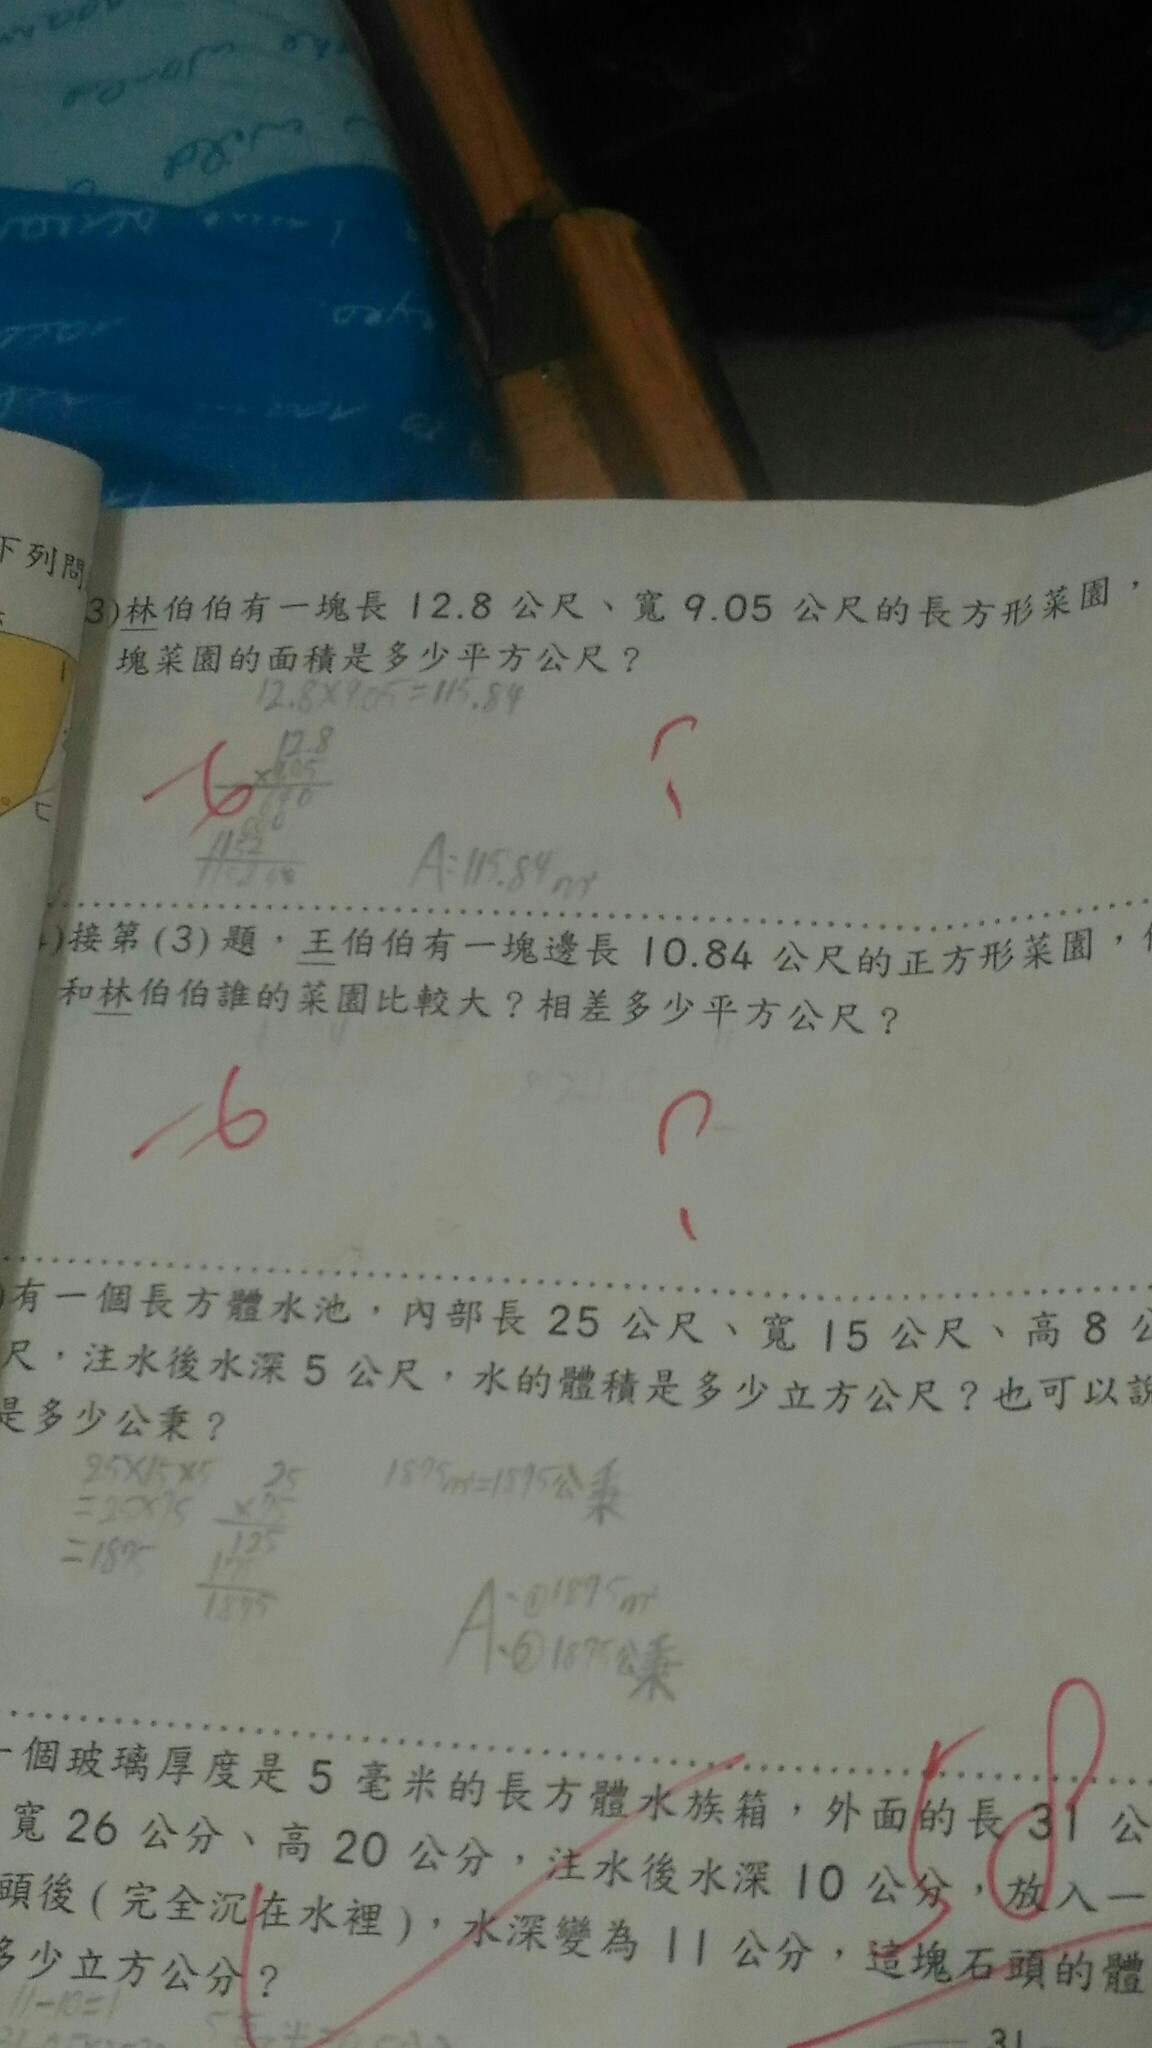 下列問
3)林伯伯有一塊長 12.8 公尺、寬 9.05 公尺的長方形菜園，
塊菜園的面積是多少平方公尺？
12.8×9.05=115.84
12.8
×9.05
640
1152
-6
?
A:115.84㎡
)接第(3)題，王伯伯有一塊邊長 10.84 公尺的正方形菜園，
和林伯伯誰的菜園比較大？相差多少平方公尺？
-6
?
)有一個長方體水池，內部長 25 公尺、寬 15 公尺、高 8 公
尺，注水後水深 5 公尺，水的體積是多少立方公尺？也可以說
是多少公秉？
25×15×5
=25×75
=1875
25
×75
125
175
1875
1875㎡=1875公秉
A:①1875㎡
②1875公秉
一個玻璃厚度是 5 毫米的長方體水族箱，外面的長 31 公
寬 26 公分、高 20 公分，注水後水深 10 公分，放入一
頭後(完全沉在水裡)，水深變為 11 公分，這塊石頭的體
多少立方公分？
58
11-10=1
31